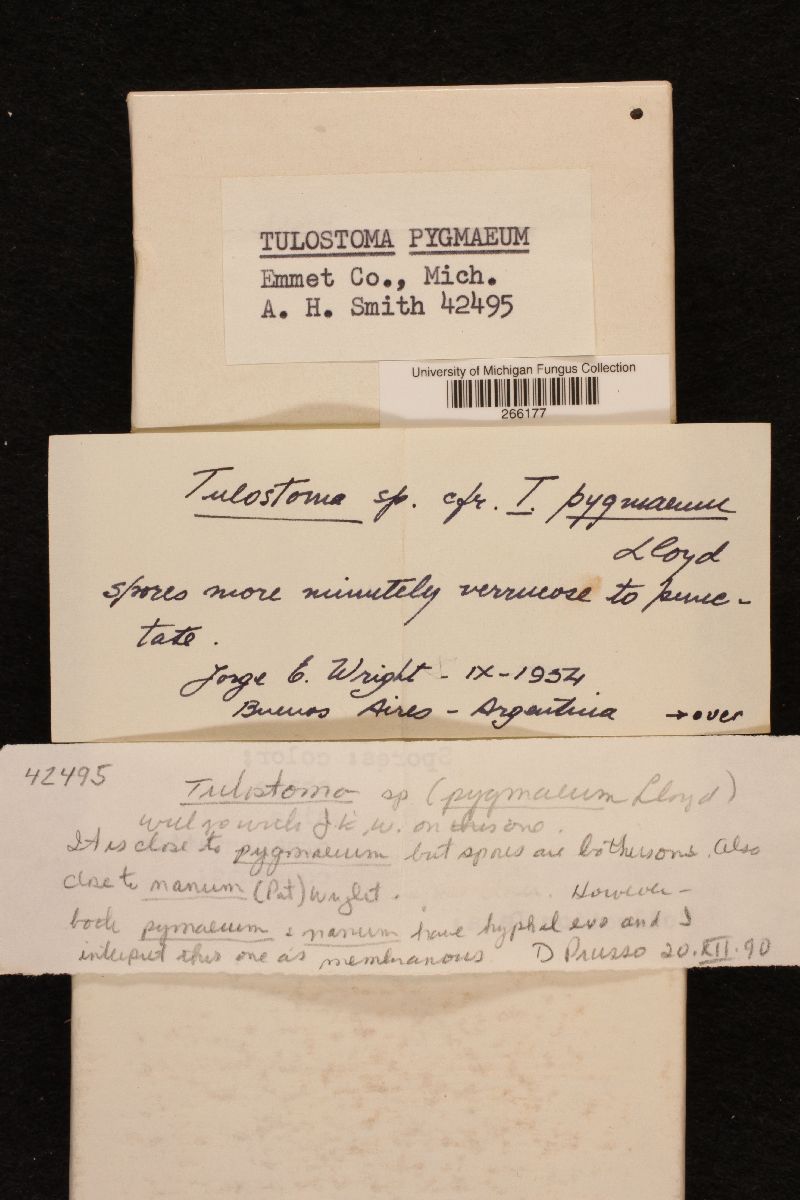 TULOSTOMA PYGMAEUM
Emmet Co., Mich.
A. H. Smith 42495
University of Michigan Fungus Collection
266177
Tulostoma sp. cfr. T. pygmaeum
Lloyd
spores more minutely verrucose to punc-
tate.
Jorge E. Wright - IX-1954
Buenos Aires - Argentina → over
Spores: color:
42495
Tulostoma sp (pygmaeum Lloyd)
will go with W. on this one.
It is close to pygmaeum but spores are bothersome. Also
close to nanum (Pat) Wright. However -
both pymaeum & nanum have hyphal exo and I
interpret this one as membranous. D Prusso 20.XII.90